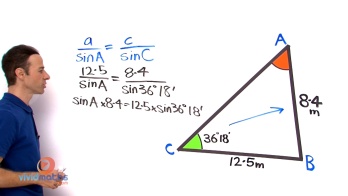 a/sinA = c/sinC
12.5/sinA = 8.4/sin36°18'
sinA × 8.4 = 12.5 × sin36°18'
A
8.4
m
36°18'
C
12.5m
B